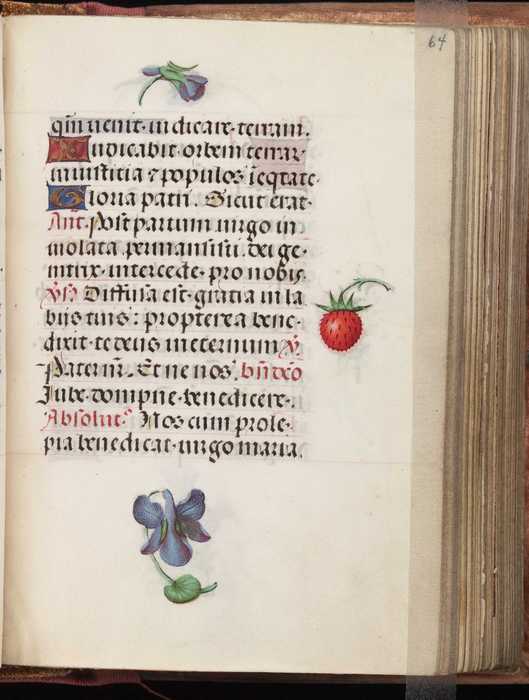 64
qm̄ uenit · iudicare · terram.
Iudicabit · orbem terrar
in iusticia ⁊ populos ī eq̄tate ·
Gloria patri . Sicut erat ·
Añt. Post partum uirgo in
uiolata permansisti. dei ge ·
nitrix · intercede · pro nobis.
Diffusa est · gratia in la
bijs tuis : propterea bene ·
dixit · te deus in eternum
Pater nr̄. Et ne nos. bn̄dcō
Iube · dompne · benedicere ·
Absolut° Nos cum prole ·
pia benedicat · uirgo maria.